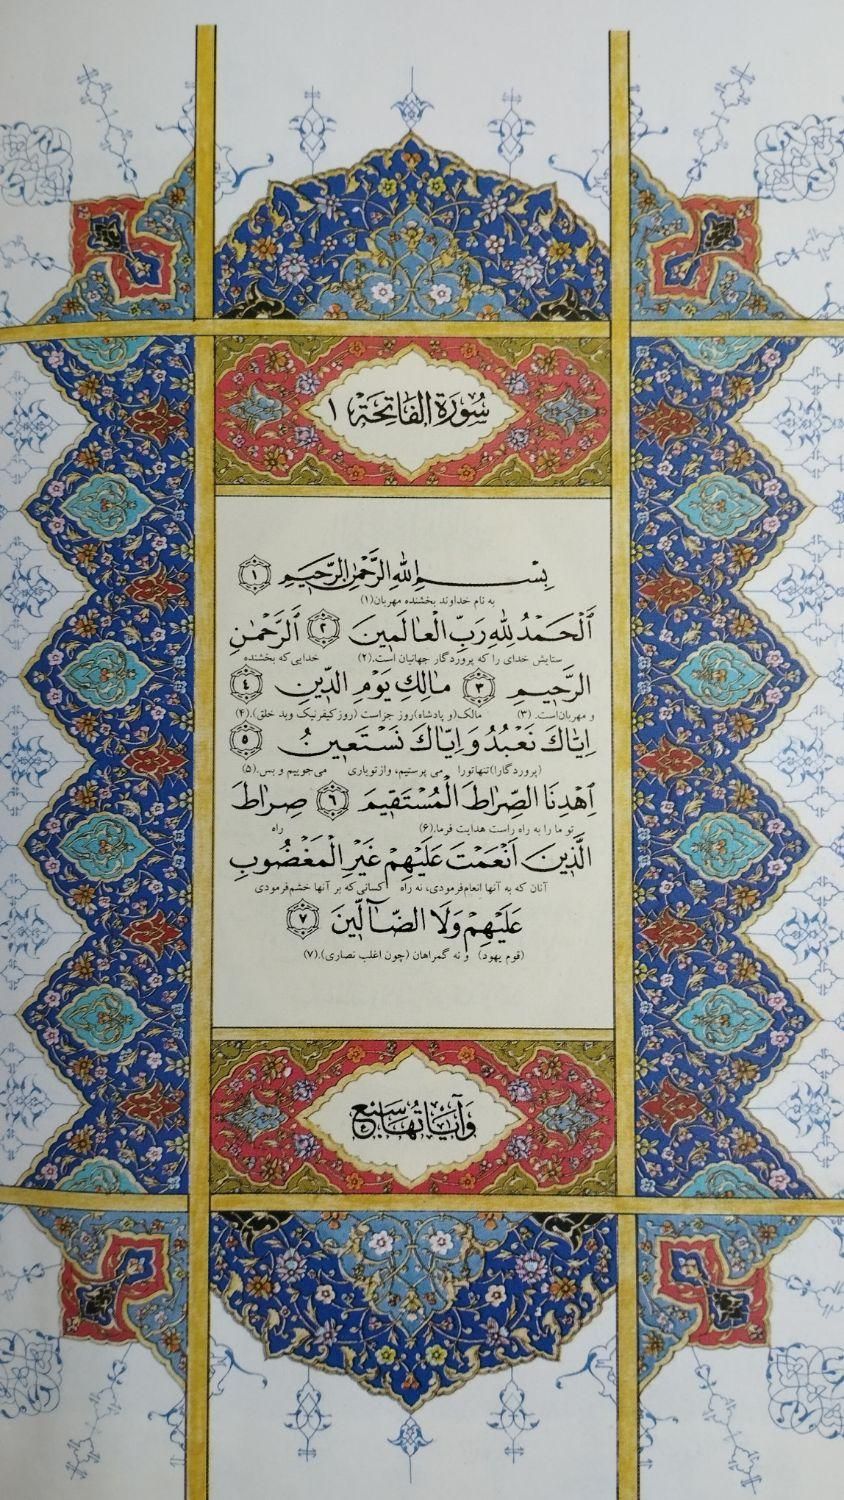 سُورَةُ الفَاتِحَة ١
بِسْمِ اللهِ الرَّحْمٰنِ الرَّحِیمِ ١
به نام خداوند بخشنده مهربان(۱)
اَلْحَمْدُ لِلهِ رَبِّ الْعٰالَمِینَ ٢ اَلرَّحْمٰنِ
ستایش خدای را که پروردگار جهانیان است.(۲) خدایی که بخشنده
الرَّحِیمِ ٣ مٰالِكِ یَوْمِ الدِّینِ ٤
و مهربان‌است. (۳) مالک(و پادشاه)روز جزاست (روزکیفرنیک وبد خلق).(۴)
اِیّٰاكَ نَعْبُدُ وَ اِیّٰاكَ نَسْتَعینُ ٥
(پروردگارا)تنهاتورا می پرستیم، وازتویاری می‌جوییم و بس.(۵)
اِهْدِنَا الصِّرٰاطَ الْمُسْتَقیمَ ٦ صِرٰاطَ
تو ما را به راه راست هدایت فرما.(۶) راه
الَّذینَ اَنْعَمْتَ عَلَیْهِمْ غَیْرِ الْمَغْضُوبِ
آنان که به آنها انعام‌فرمودی، نه راه کسانی که بر آنها خشم‌فرمودی
عَلَیْهِمْ وَلَا الضّٰآلّینَ ٧
(قوم یهود) و نه گمراهان (چون اغلب نصاری).(۷)
وَآیٰاتُهٰا سَبْعٌ